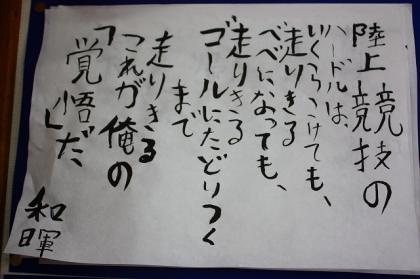 陸上競技の
ハードルは、
いくらこけても、
走りきる
べべになっても、
走りきる
ゴールにたどりつく
まで
走りきる
これが俺の
「覚悟」だ、
和暉